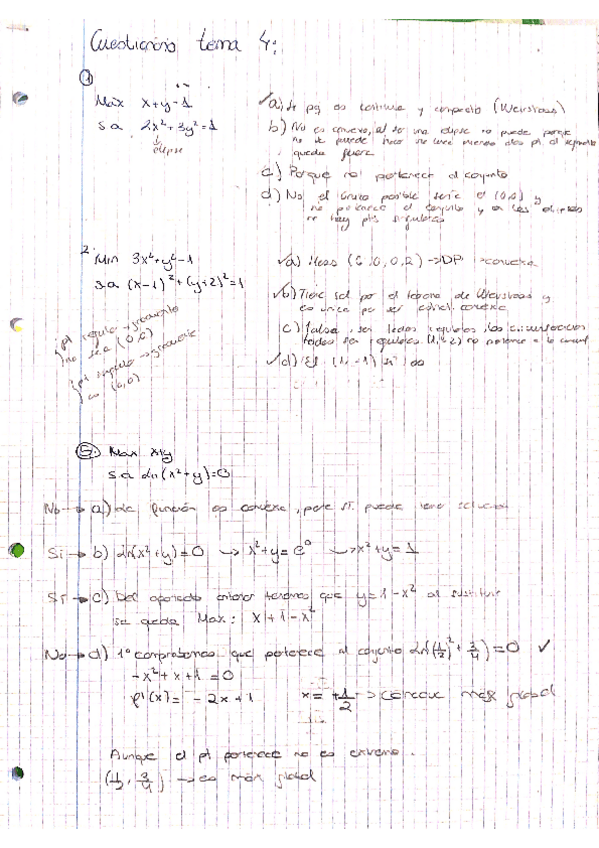 Cuestionario tema 4:
①
Máx x+y-1
s a 2x²+3y²=1
↳ elipse
✓a) es continua y compacto (Weierstrass)
b) No es convexo, al ser una elipse no puede porque
no se puede hacer
queda fuera
c) Porque no pertenece al conjunto
d) No, el único posible sería el (0,0) y
no pertenece al conjunto y en las elipses
no hay pts singulares
2.
Min 3x²+y²-1
s a (x-1)²+(y+2)²=1
pt regular → gradiente
no sea (0,0)
pt singular → gradiente
es (0,0)
✓a) Hess (6,0,0,2) → DP → convexa
✓b) Tiene sol por el teorema de Weierstrass y
es única por ser convexa
c) falsa, ser todos regulares, las circunferencias
todos son regulares (1,-2) no pertenece a la
✓d) (1,-1)
⑤. Max x+y
s a ln(x²+y)=0
No → a) la función es convexa, puede tener solución
Si → b) ln(x²+y)=0 → x²+y=e⁰ → x²+y=1
Si → c) Del apartado anterior tenemos que y=1-x² al sustituir
se queda Max: x+1-x²
No → d) 1º comprobamos que pertenece al conjunto ln((1/2)²+3/4)=0 ✓
-x²+x+1=0
f'(x)= -2x+1 x=+1/2 → cóncava máx global
Aunque el pt pertenece no es extremo.
(1/2, 3/4) → es máx global